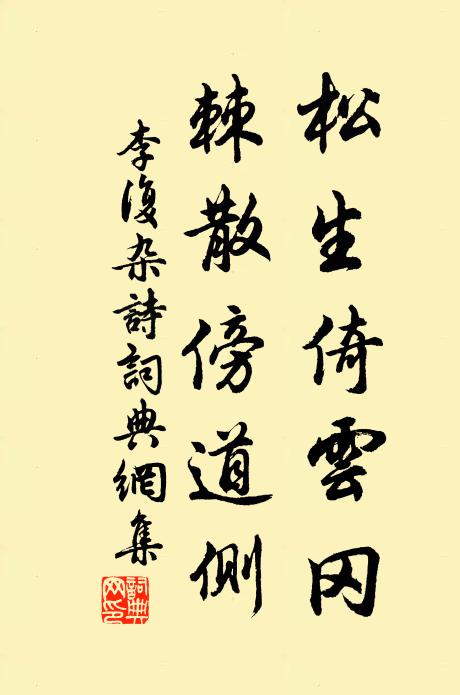 松生倚雲冈
棘散傍道側
李復杂詩詞典網集
詞典网印